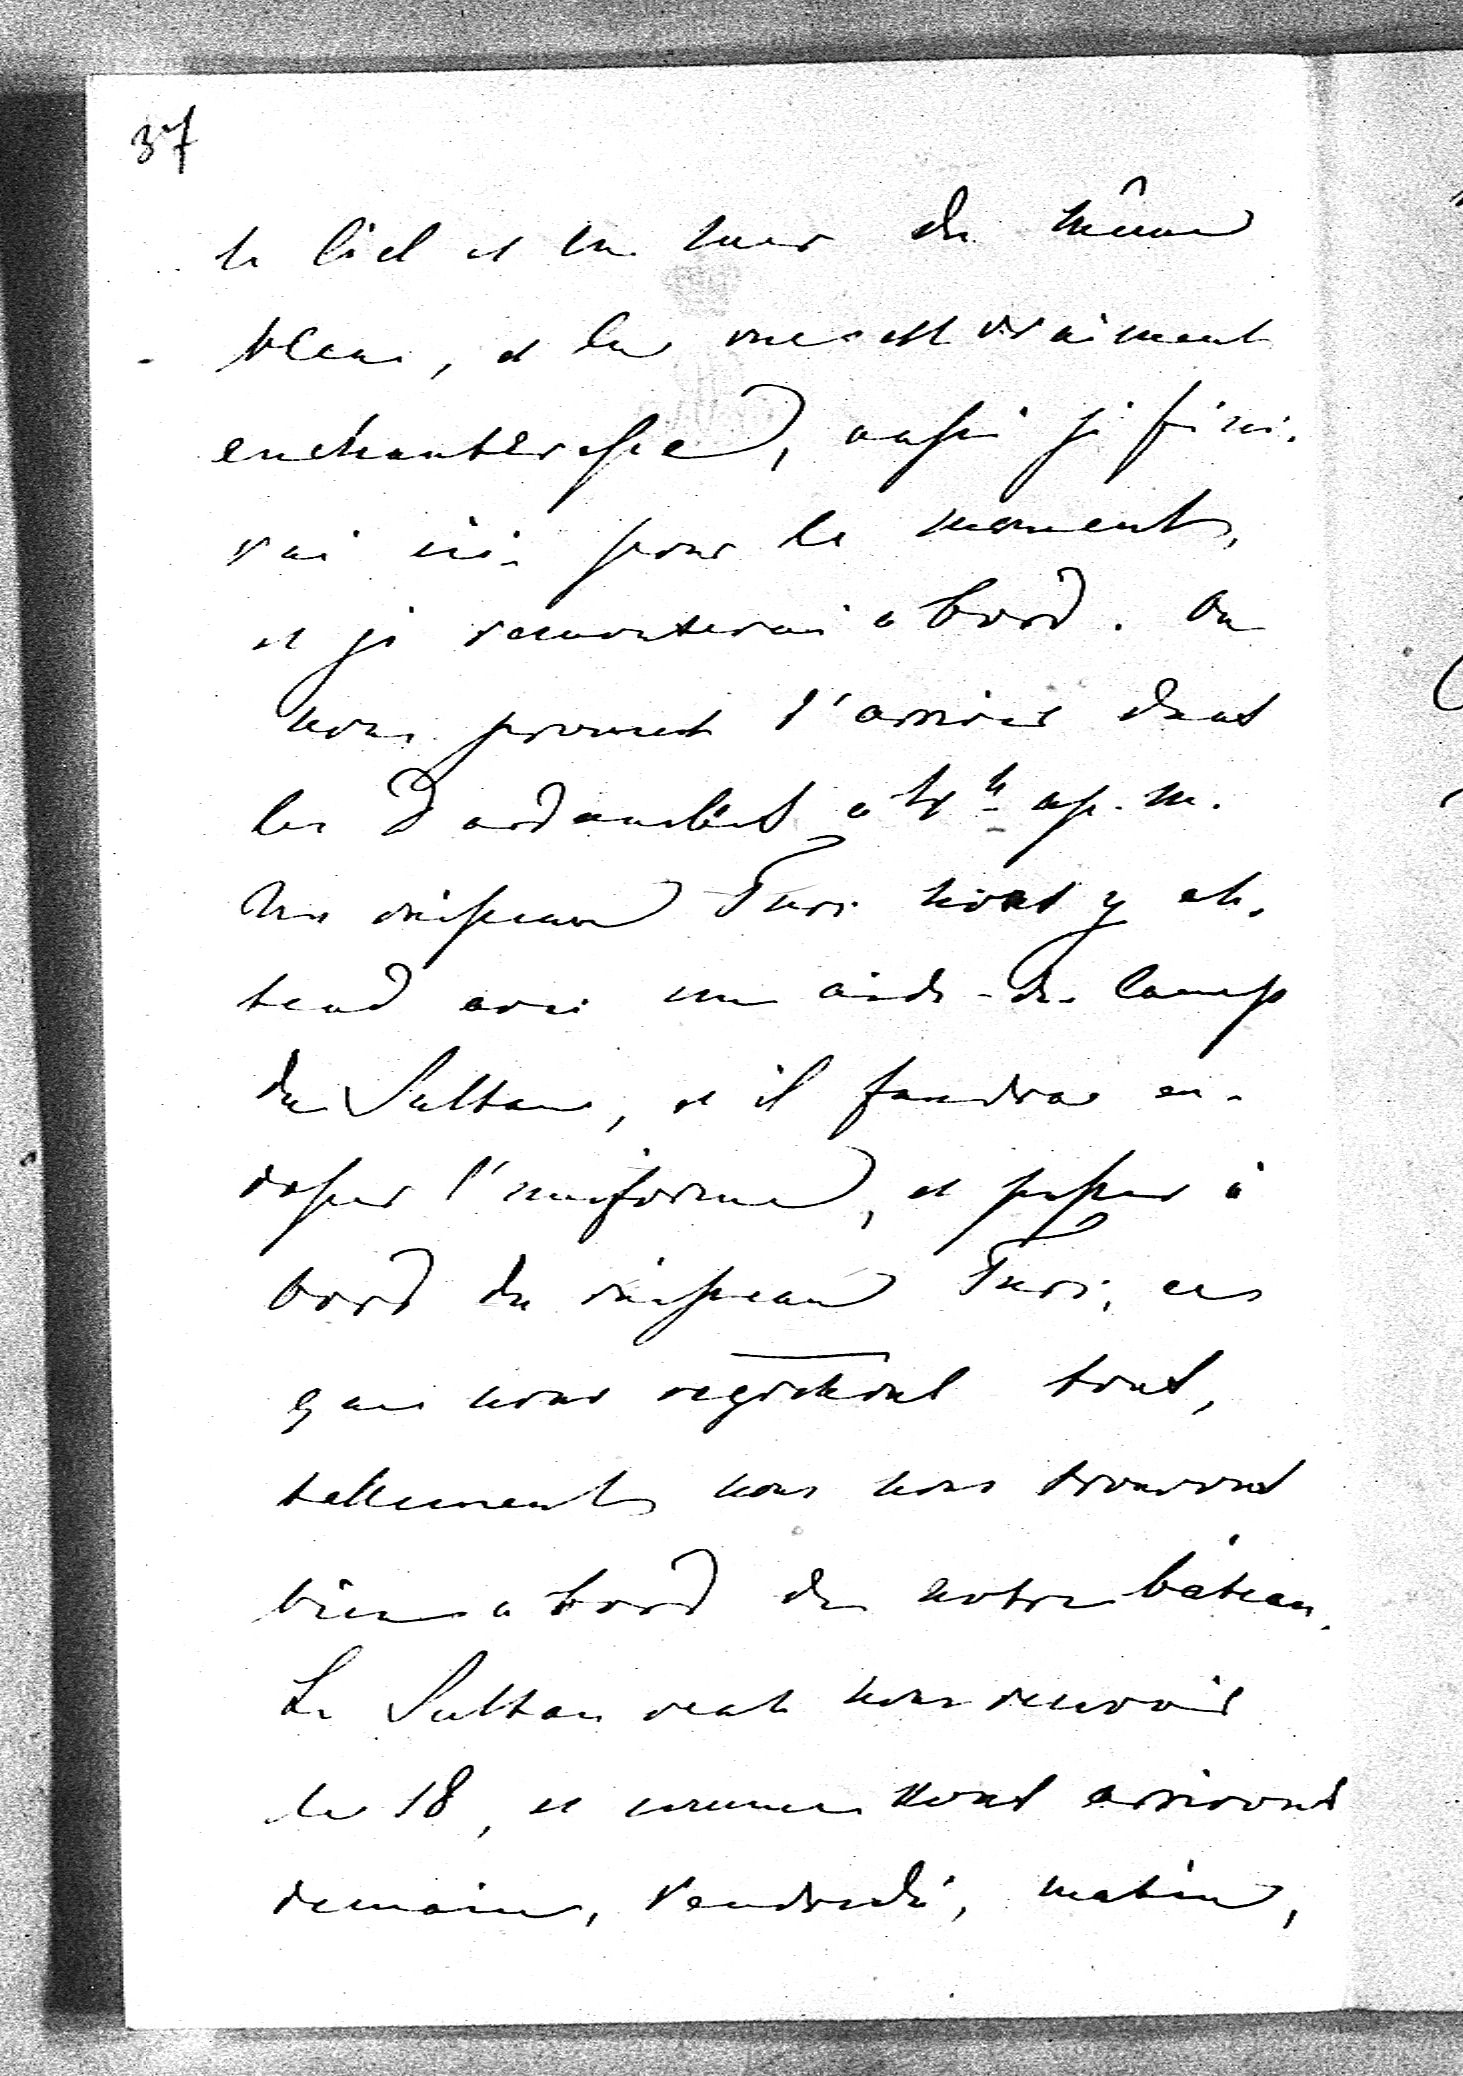 37
le ciel et la mer du même
bleu, et la vue est vraiment
enchanteresse, aussi je fini-
rai ici pour le moment,
et je remonterai a bord. On
nous promet d'arriver dans
les Dardanelles a 4h ap. m.
Un vaisseau Turc nous y at-
tend avec un aide-de-camp
du Sultan, et il faudra en-
dosser l'uniforme, et passer à
bord du vaisseau Turc, ce
que nous regrettons tous,
tellement nous nous trouvons
bien a bord de notre bateau.
Le Sultan veut nous recevoir
le 18, et comme nous arrivons
demain, Vendredi, matin,